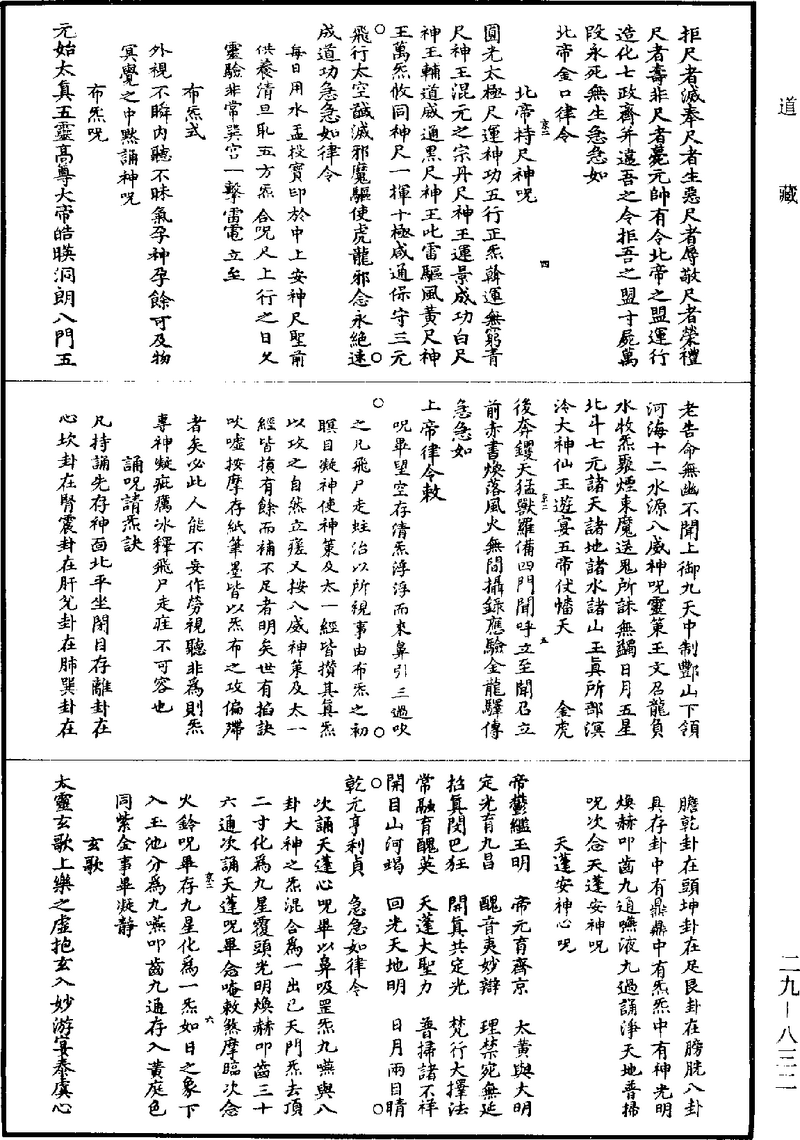 道藏
二九—八三二
拒尺者滅奉尺者生惡尺者辱敬尺者榮禮
尺者壽非尺者薨元帥有令北帝之盟運行
造化七政齊并遠吾之令拒吾之盟寸屍萬
段永死無生急急如
北帝金口律令
北帝持尺神呪
圓光太極尺運神功五行正炁斡運無窮青
尺神王混元之宗丹尺神王運景成功白尺
神王輔道感通黑尺神王比雷驅風黃尺神
王萬炁攸同神尺一揮十極咸通保守三元
飛行太空誠滅邪魔驅使虎龍邪念永絕速
成道功急急如律令
每日用水盂投寶印於中上安神尺聖前
供養清旦取五方炁合呪尺上行之日久
靈驗非常巽宮一擊雷電立至
布炁式
外視不瞬內聽不昧氣孕神孕餘可及物
冥覺之中默誦神呪
布炁呪
元始太真五靈高尊大帝皓暎洞朗八門五
老告命無幽不聞上御九天中制酆山下領
河海十二水源八威神呪靈策玉文召龍負
水牧炁聚煙束魔送鬼所誅無蠲日月五星
北斗七元諸天諸地諸水諸山玉真所部溟
泠大神仙王遊宴五帝仗幡天 金虎
後奔钁天猛獸羅備四門聞呼立至聞召立
前赤書煥落風火無間攝錄應驗金龍驛傳
急急如
上帝律令敕
呪畢望空存清炁浮浮而來鼻引三過吹
之凡飛尸走蛀治以所視事由布炁之初
瞑目凝神使神策及太一經皆攢其真炁
以攻之自然立瘥又按八威神策及太一
經皆損有餘而補不足者明矣世有掐訣
吹噓按摩存紙筆墨皆以炁布之攻偏殢
者矣必此人能不妄作勞視聽非為則炁
專神凝疵癘冰釋飛尸走疰不可容也
誦呪請炁訣
凡持誦先存神面北平坐閉目存離卦在
心坎卦在腎震卦在肝兌卦在肺巽卦在
膽乾卦在頭坤卦在足艮卦在膀胱八卦
具存卦中有鼎鼎中有炁炁中有神光明
煥赫叩齒九通嚥液九過誦淨天地普掃
呪次念天蓬安神呪
天蓬安神心呪
帝鬱繼玉明 帝元育齋京 太黃與大明
定光育九昌 醜音夷妙辯 理禁宛無延
招真閔巴狂 開真共定光 梵行大擇法
常融育醜英 天蓬大聖力 普掃諸不祥
開目山河竭 回光天地明 日月兩目睛
乾元亨利貞 急急如律令
次誦天蓬心呪畢以鼻吸罡炁九嚥與八
卦大神之炁混合為一出已天門炁去頂
二寸化為九星覆頭光明煥赫叩齒三十
六通次誦天蓬呪畢念唵敕煞摩臨次念
火鈴呪畢存九星化為一炁如日之象下
入玉池分為九嚥叩齒九通存入黃庭色
同紫金事畢凝靜
玄歌
太靈玄歌上樂之虛抱玄入妙游宴泰虞心